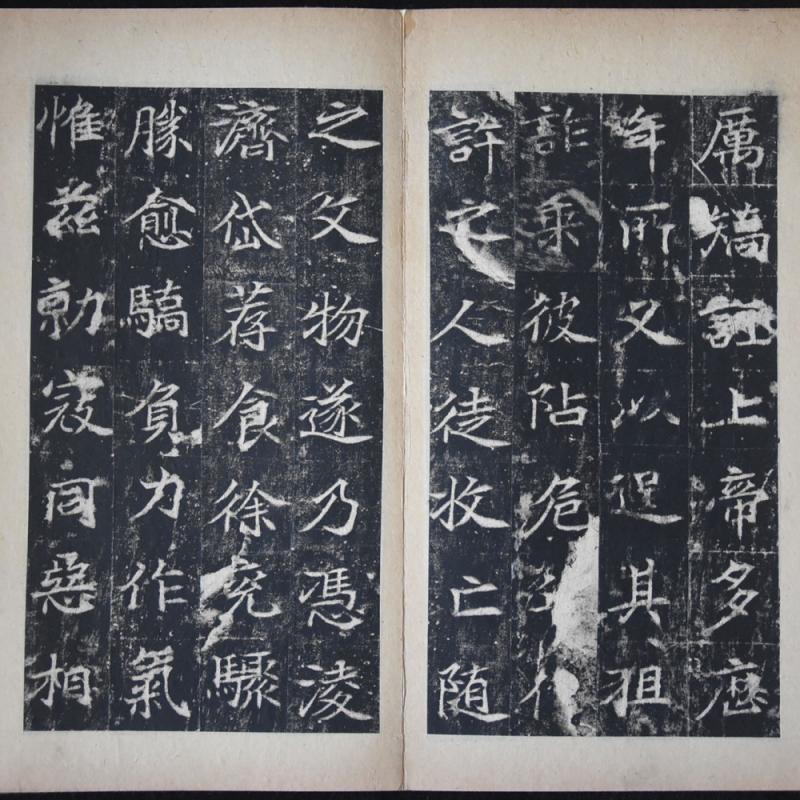 厲矯誣上帝多歷
年所又以逞其狙
詐乘彼阽危
許之人徒收亡随
之文物遂乃憑淩
濟岱荐食徐兗驟
勝愈驕負力作氣
惟茲勍寇同惡相